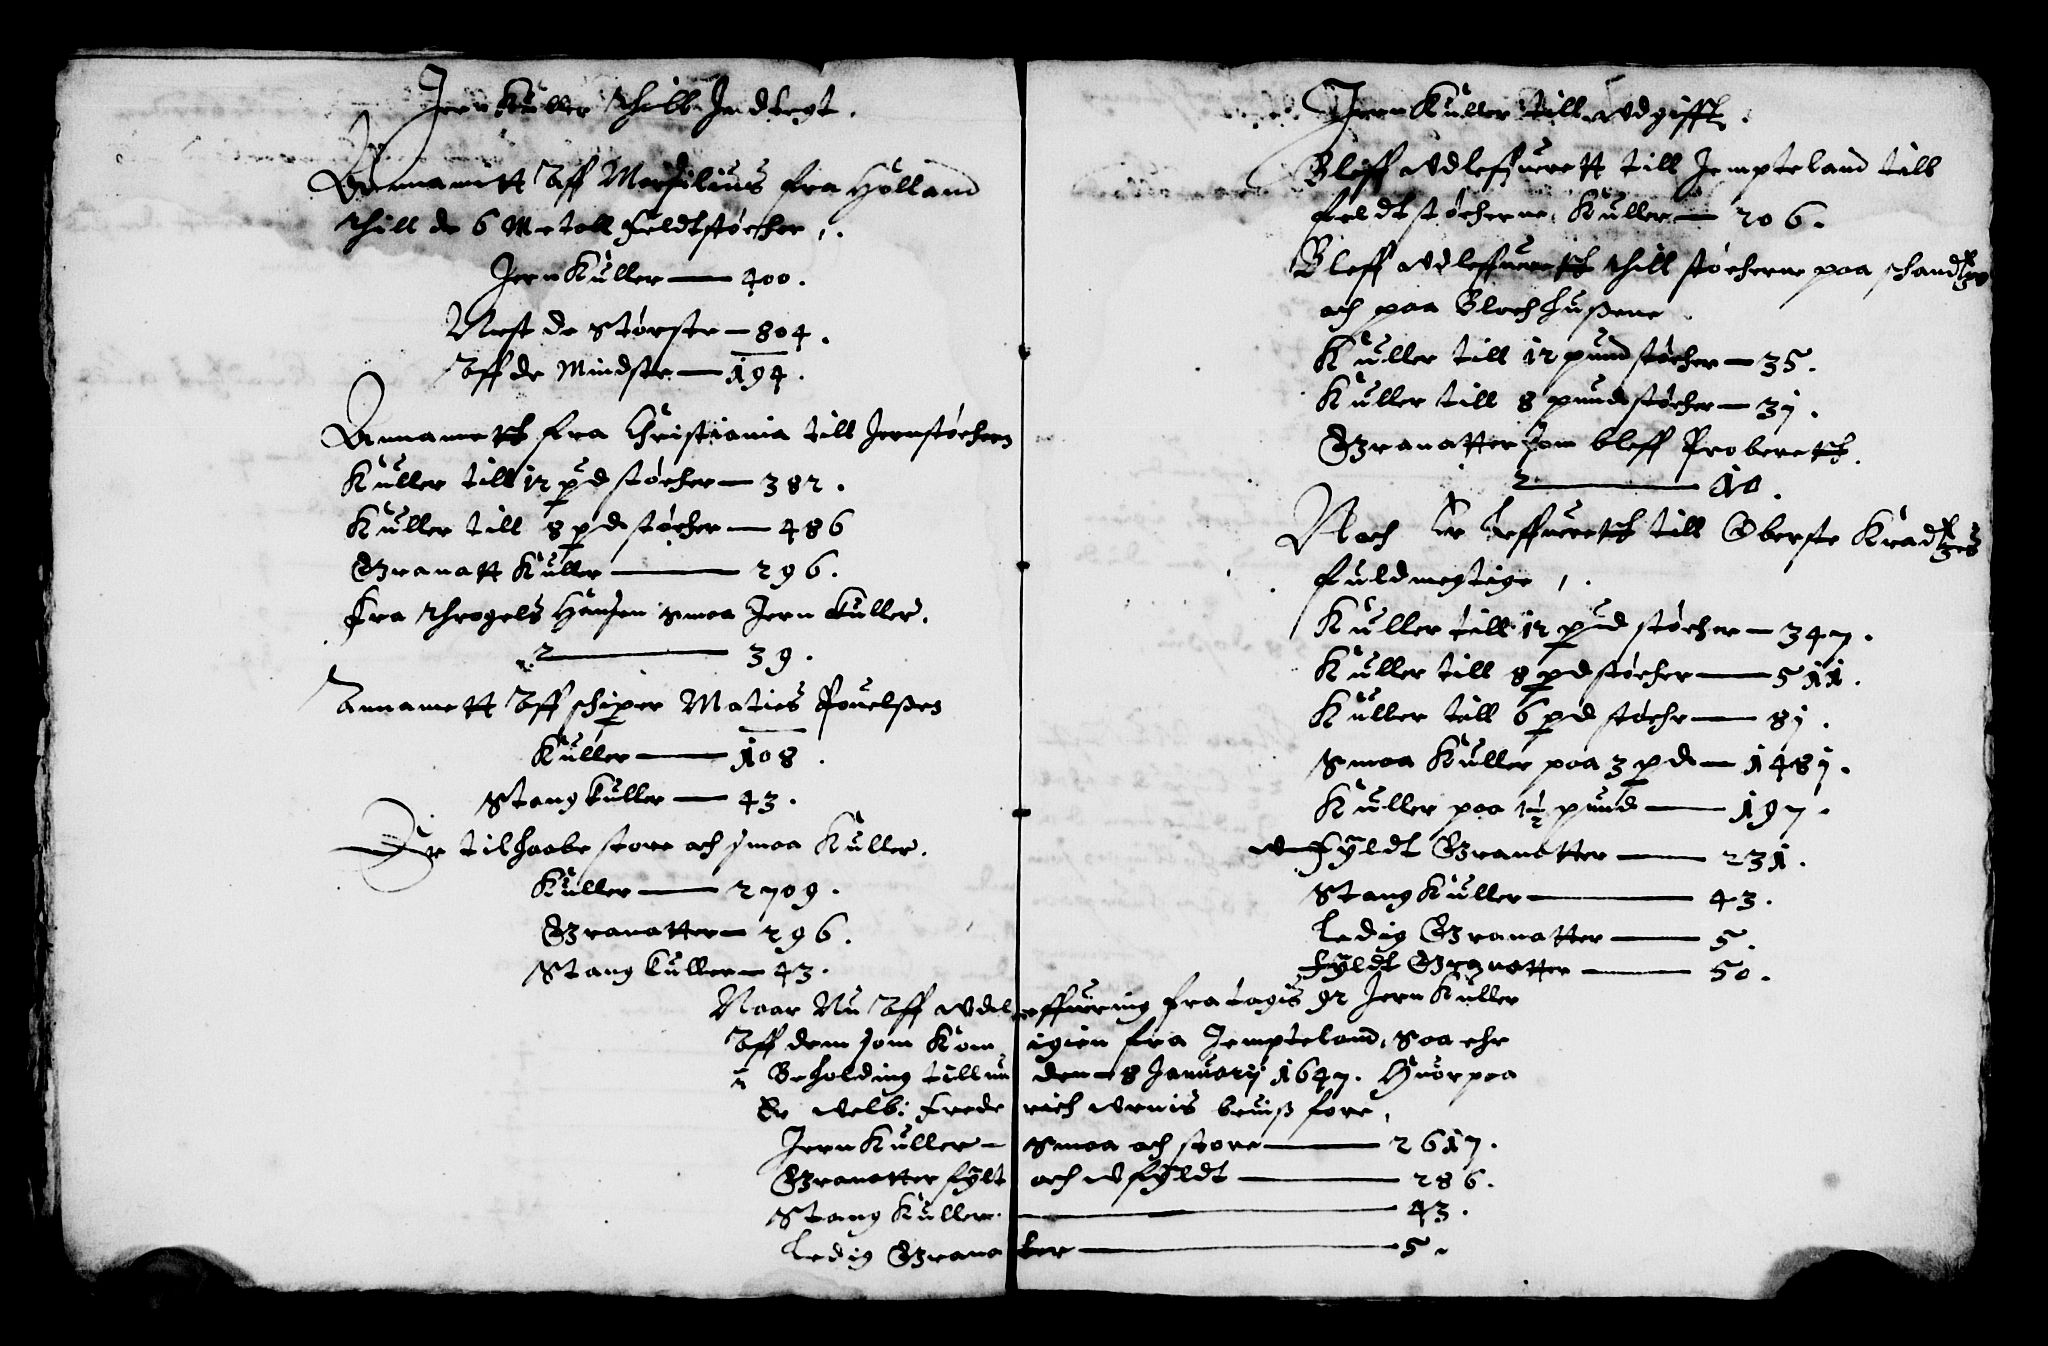 Jern Kuller thill Indtegt.
Annamett Aff Marsilius fra Holland
thill de 6 Metall Feldtstøcher,.
Jern Kuller — 400.
Nest de Største — 804.
Aff de Mindste — 194.
Annameth fra Christiania till Jernstøchern
Kuller till 12 pd støcher — 382.
Kuller till 8 pd støcher — 486
Granatt Kuller — 296.
Fra Throgels Hansen Smaa Jern Kuller.
2 — 39.
Annamett Aff schiper Maties Pouelßen
Kuller — 108.
Stang Kuller — 43.
Er tilhaabe store och smaa Kuller.
Kuller — 2709.
Granatter — 296.
Stang Kuller — 43.
Jern Kuller till Udgifft.
Bleff Udleffuerett till Jempteland till
feldtstøcherne, Kuller — 206.
Bleff Udleffuereth thill støcherne paa schandtzen
och paa Blochhußene.
Kuller till 12 pund støcher — 35.
Kuller till 8 pundstøcher — 31.
Granatter som bleff Probereth.
2 — 10.
Noch Er Leffuereth till Oberste Kradtzes
fuldmegtige,.
Kuller till 12 pud støcher — 347.
Kuller till 8 pd støcher — 511.
Kuller till 6 pd støchr — 81.
Smaa Kuller paa 3 pd — 1481.
Kuller paa 1½ pund — 197.
U-Fyldt Granatter — 231.
Stang Kuller — 43.
Ledig Granatter — 5.
Fyldt Granatter — 50.
Naar Nu Aff Udleffuring fra tagis 92 Jern Kuller
Aff dem som Kom igien fra Jempteland, Saa ehr
i Beholding till nu den 8 January 1647. Huorpaa
Er Velb: Frederich Urnis beuiß fore,
Jern Kuller — Smaa och store — 2617.
Granatter fylt och Ufyldt — 286.
Stang Kuller — 43.
Ledig Granatter — 5.